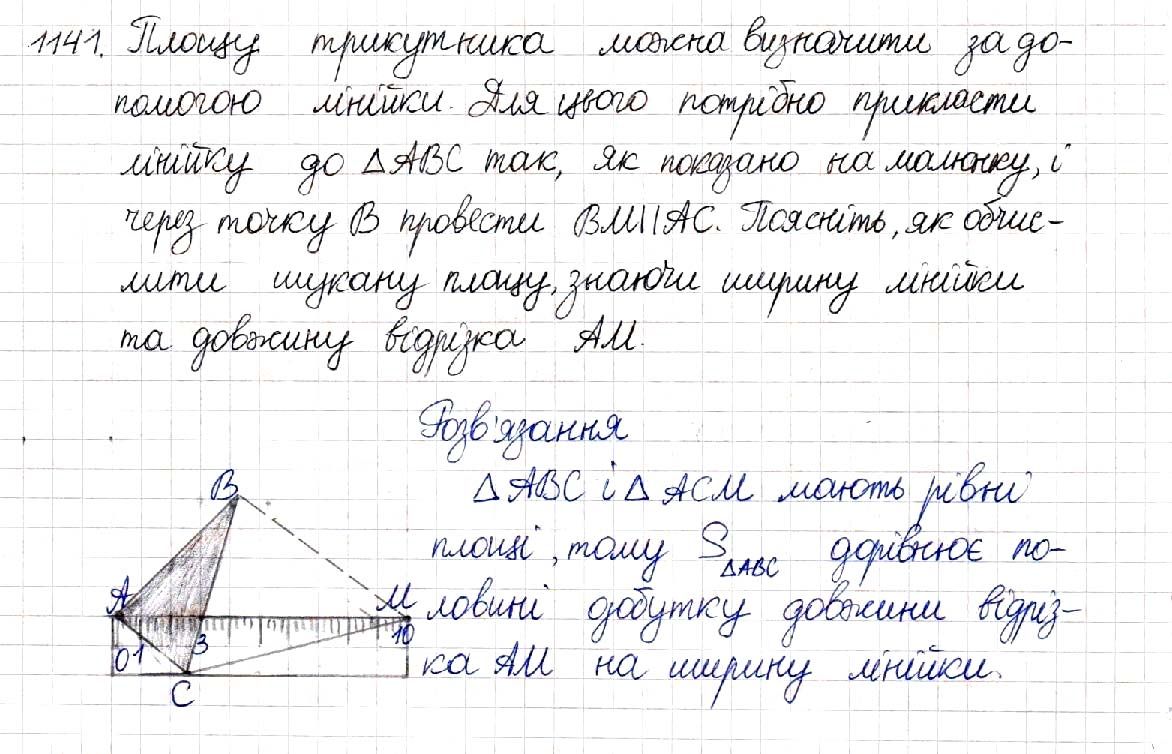 1141. Площу трикутника можна визначити за до-
помогою лінійки. Для цього потрібно прикласти
лінійку до △ABC так, як показано на малюнку, і
через точку B провести BM||AC. Поясніть, як обчис-
лити шукану площу, знаючи ширину лінійки
та довжину відрізка AM.
Розв'язання
△ABC і △ACM мають рівні
площі, тому S△ABC дорівнює по-
ловині добутку довжини відріз-
ка AM на ширину лінійки.
B
A
M
0 1 3 10
C